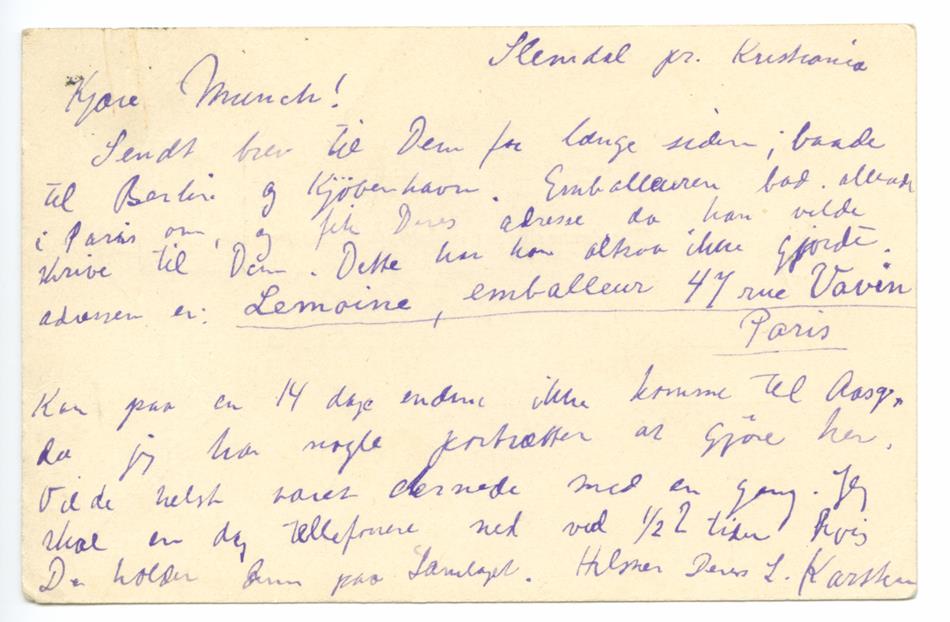 Slemdal pr. Kristiania
Kjære Munch!
Sendt brev til Dem for længe siden; baade
til Berlin og Kjøbenhavn. Emballeuren bad allerede
i Paris om, og fik Deres adresse da han vilde
skrive til Dem. Dette har han altsaa ikke gjordt.
adressen er: Lemoine, emballeur 47 rue Vavin
Paris
Kan paa en 14 dage endnu ikke komme til Aasg.,
da jeg har nogle portrætter at gjøre her.
Vilde helst været dernede med en gang. Jeg
skal en dag tellefonere ned ved 1/2 2 tiden hvis
De holder paa. Hilsner Deres L. Karsten